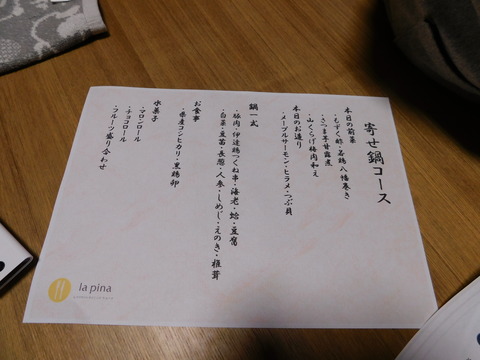 寄せ鍋コース
本日の前菜
・もずく酢・若鶏八幡巻き
・さつま芋甘露煮
・山くらげ梅肉和え
本日のお造り
・メープルサーモン・ヒラメ・つぶ貝
鍋一式
・豚肉・伊達鶏つくね串・海老・蛤・豆腐
・白菜・豆苗・長葱・人参・しめじ・えのき・椎茸
お食事
・県産コシヒカリ・黒鶏卵
水菓子
・マロンロール
・チョコロール
・フルーツ盛り合わせ
la pina